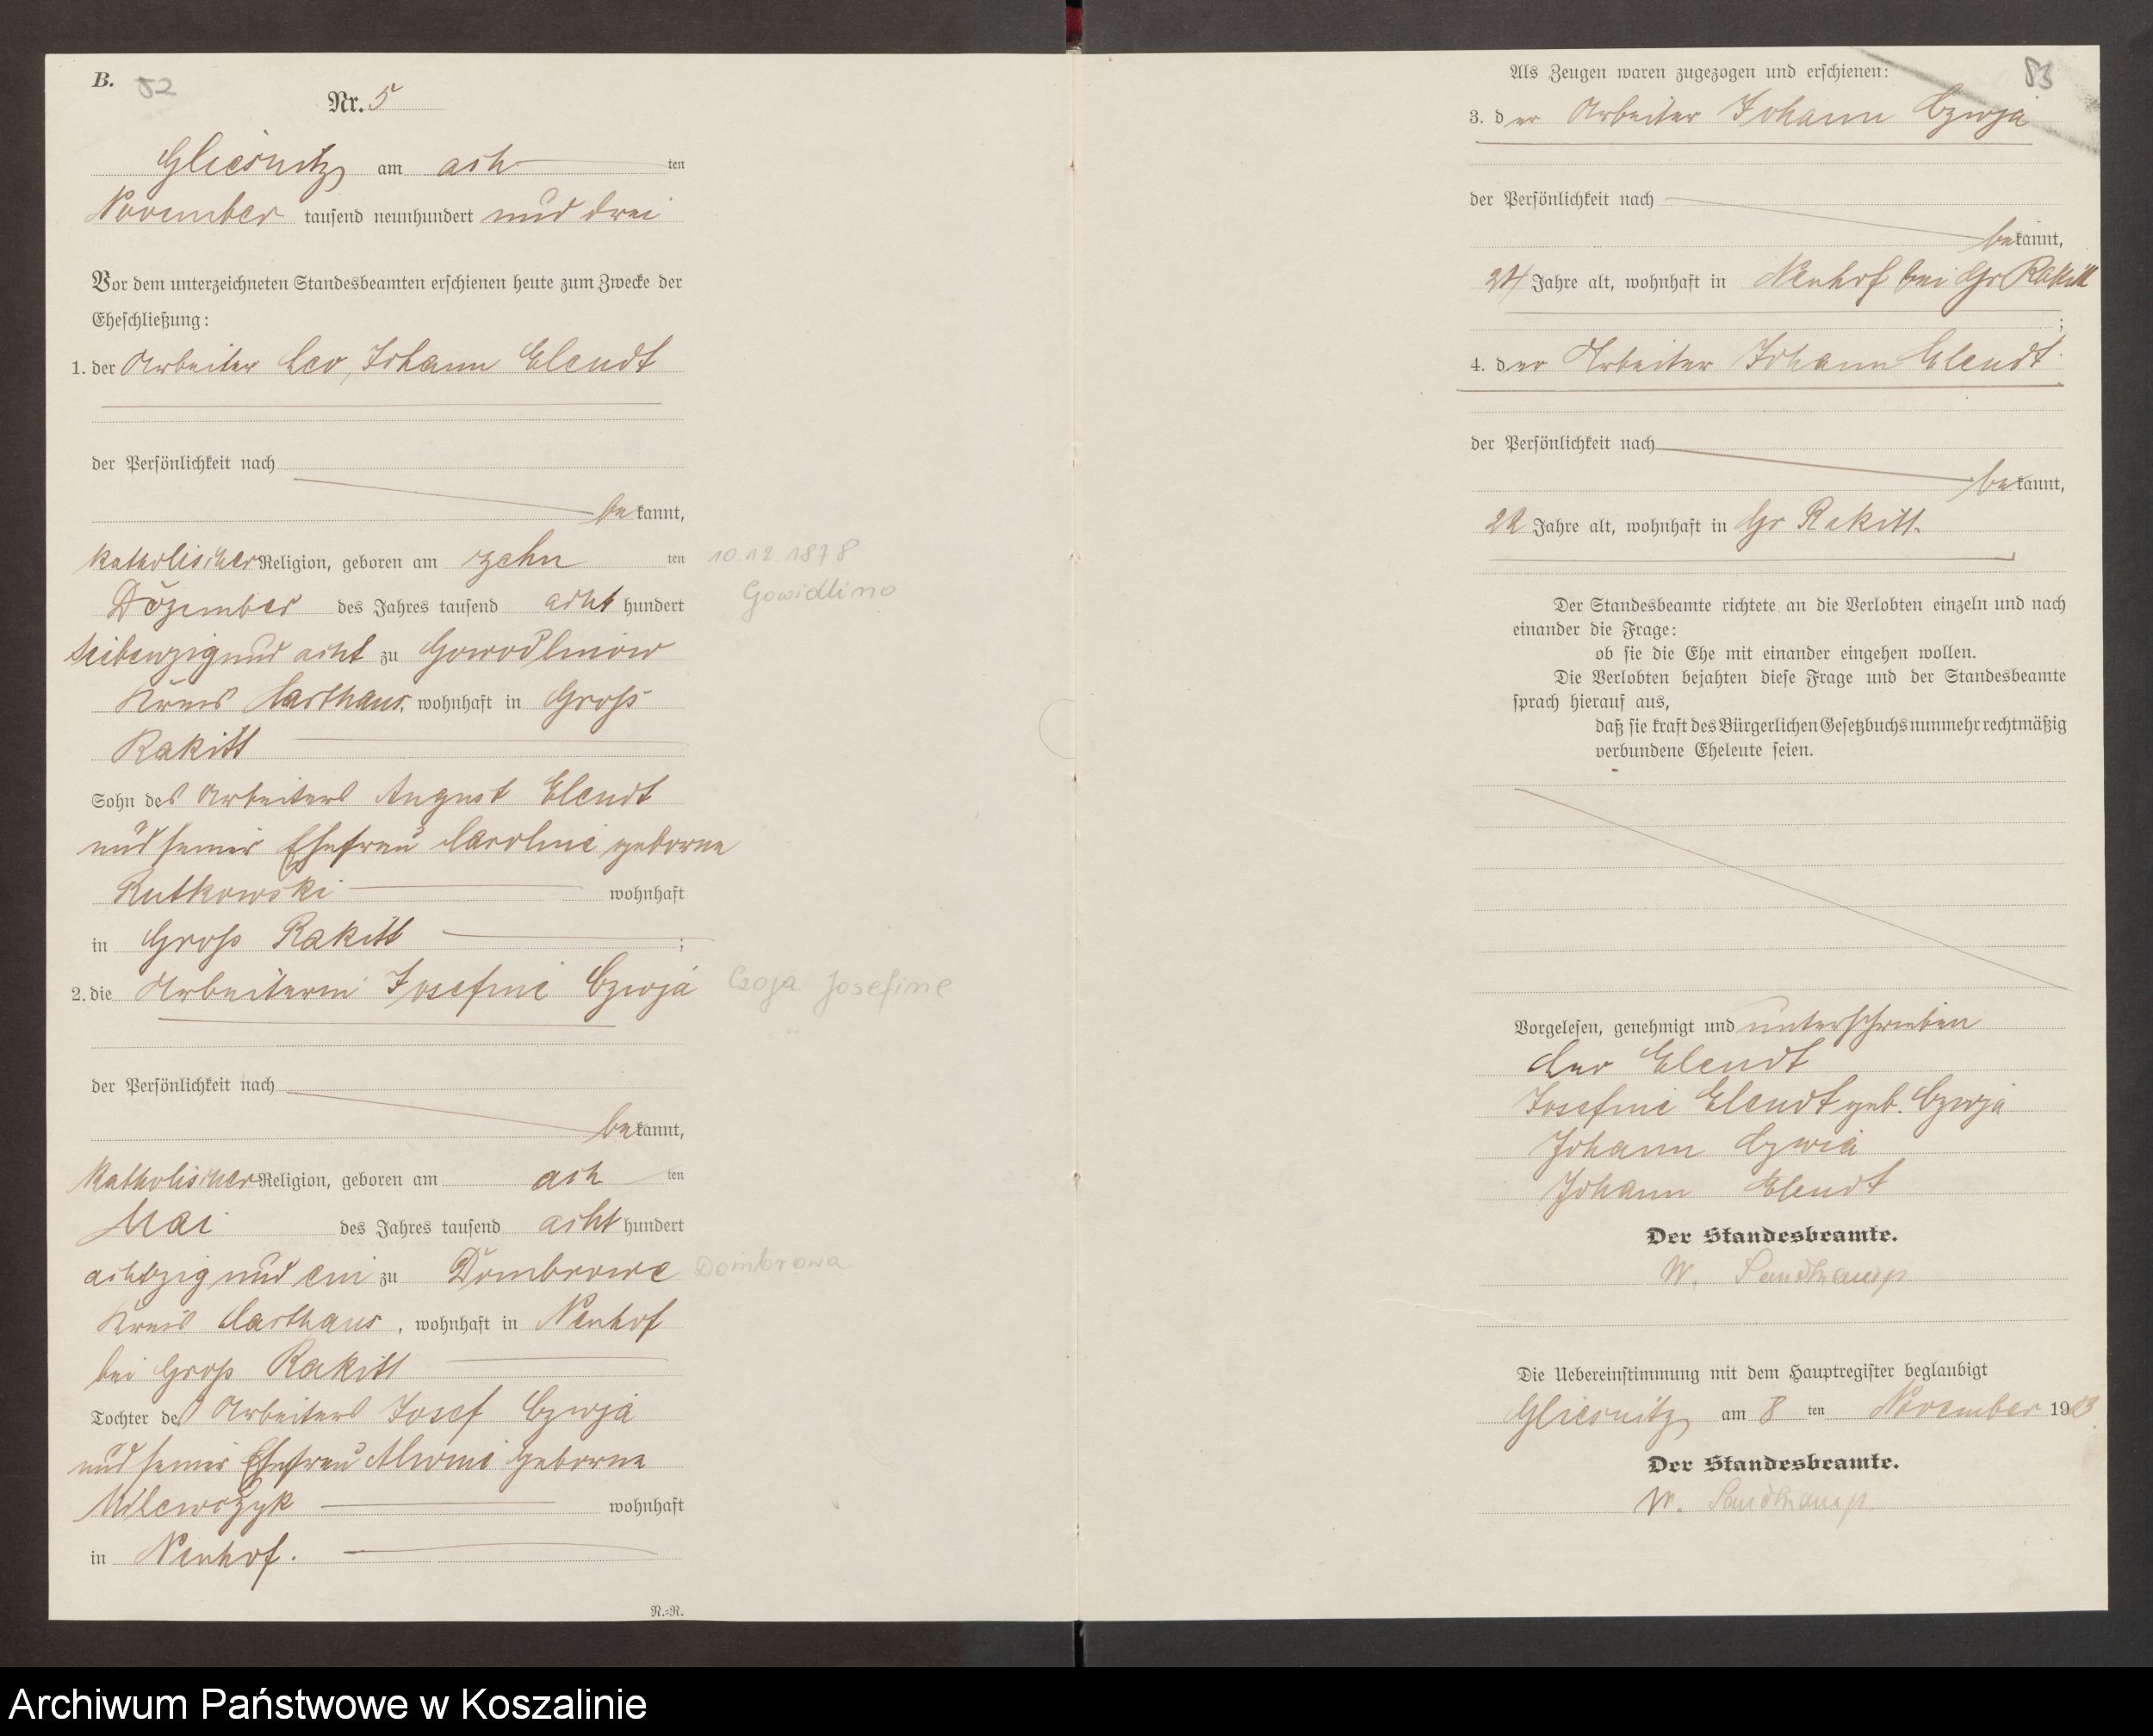 B. 52
Nr. 5
Gliesnitz am ach ten
November tausend neunhundert und drei
Vor dem unterzeichneten Standesbeamten erschienen heute zum Zwecke der
Eheschließung:
1. der Arbeiter Leo, Johann Elendt
der Persönlichkeit nach
bekannt,
katholischer Religion, geboren am zehn ten 10.12.1878
Dezember des Jahres tausend acht hundert Gowidlino
siebenzig und acht zu Gowodlinow
Kreis Carthaus, wohnhaft in Gross
Rakitt
Sohn des Arbeiters August Elendt
und seiner Ehefrau Caroline geborne
Rutkowski wohnhaft
in Gross Rakitt ;
2. die Arbeiterin Josefine Czoja Czoja Josefine
der Persönlichkeit nach
bekannt,
katholischer Religion, geboren am ach ten
Mai des Jahres tausend acht hundert
achtzig und ein zu Dombrowe Dombrowa
Kreis Carthaus, wohnhaft in Neuhof
bei Gross Rakitt
Tochter des Arbeiters Josef Czoja
und seiner Ehefrau Alwine geborne
Milewczyk wohnhaft
in Neuhof.
N.-R.
Als Zeugen waren zugezogen und erschienen: 53
3. der Arbeiter Johann Czoja
der Persönlichkeit nach
bekannt,
24 Jahre alt, wohnhaft in Neuhof bei Gr Rakitt
;
4. der Arbeiter Johann Elendt
der Persönlichkeit nach
bekannt,
22 Jahre alt, wohnhaft in Gr Rakitt.
Der Standesbeamte richtete an die Verlobten einzeln und nach
einander die Frage:
ob sie die Ehe mit einander eingehen wollen.
Die Verlobten bejahten diese Frage und der Standesbeamte
sprach hierauf aus,
daß sie kraft des Bürgerlichen Gesetzbuchs nunmehr rechtmäßig
verbundene Eheleute seien.
Vorgelesen, genehmigt und unterschrieben
Leo Elendt
Josefine Elendt geb. Czoja
Johann Czoia
Johann Elendt
Der Standesbeamte.
W. Sandkamp
Die Uebereinstimmung mit dem Hauptregister beglaubigt
Gliesnitz am 8 ten November 1903
Der Standesbeamte.
W. Sandkamp
Archiwum Państwowe w Koszalinie